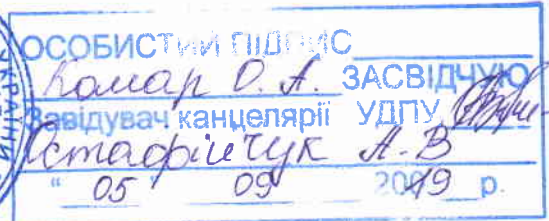 ОСОБИСТИЙ ПІДПИС
Комар О. А. ЗАСВІДЧУЮ
Завідувач канцелярії УДПУ
Остафійчук А-В
"05 09 20019 р.
УКРАЇНИ